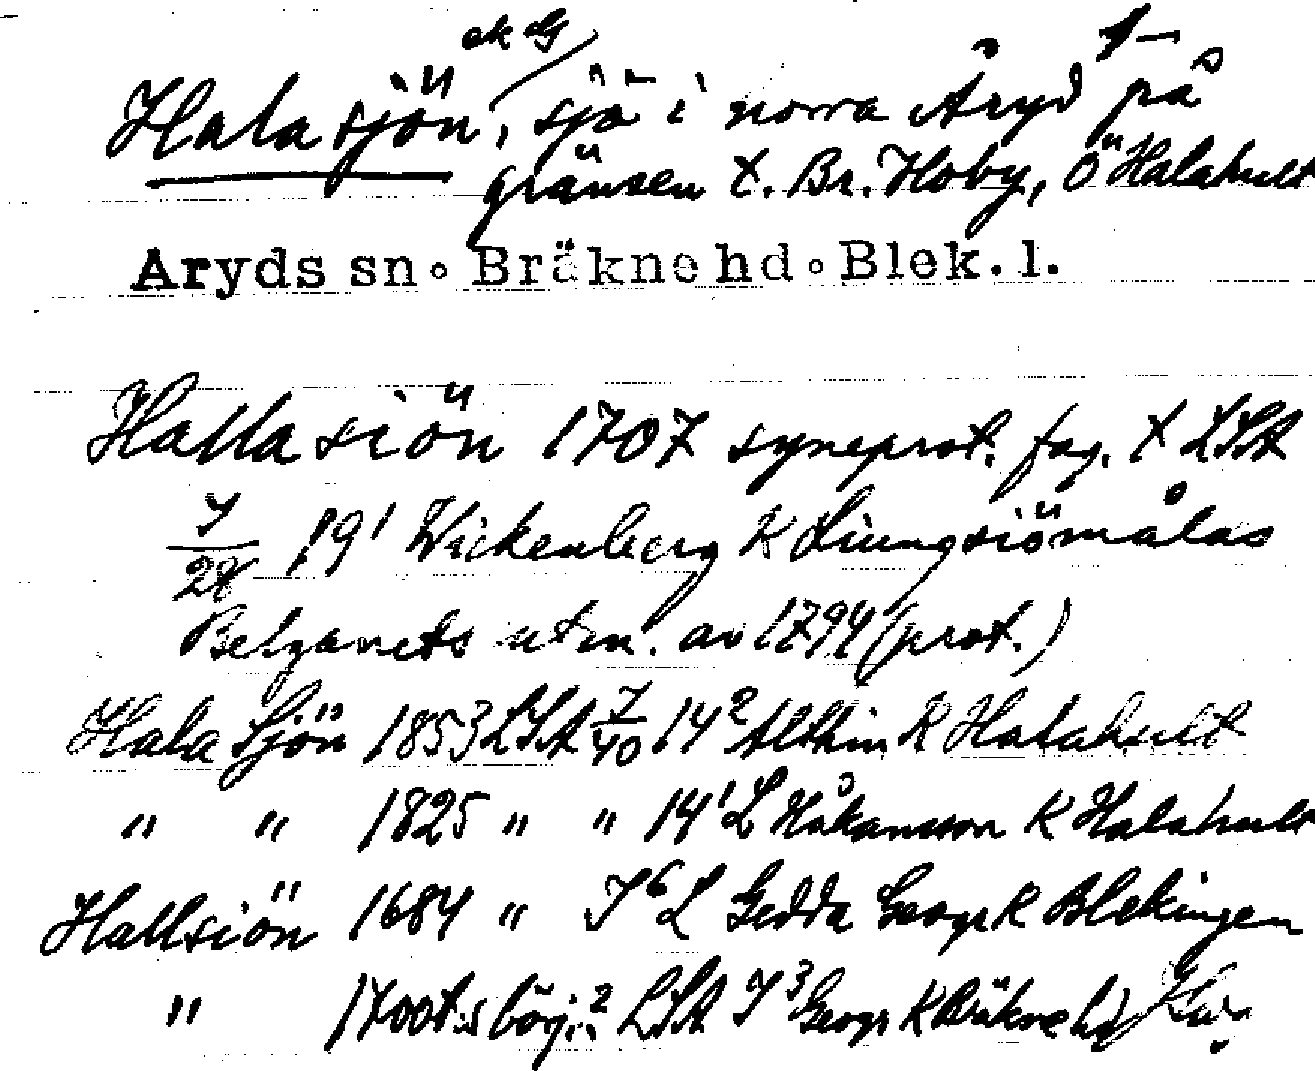 ek G
Halasjön, sjö i norra Åryd på
gränsen t. Br. Hoby, Ö Halahult
Åryds sn. Bräkne hd. Blek. l.
Hallasiön 1707 syneprot. fog. t LSA
J/28 19¹ Wickenberg K Liungsiömålas
Belganets utm. av 1794 (prot.)
Hala Sjön 1853 LSA J/40 14² Althin K Halahult
" " 1825 " " 14¹ L Håkansson K Halahult
Hallsiön 1684 " J⁶ L Gedda Geogr K Blekingen
" 1700t.s börj.? LSA J³ Geogr K Bräkne hd